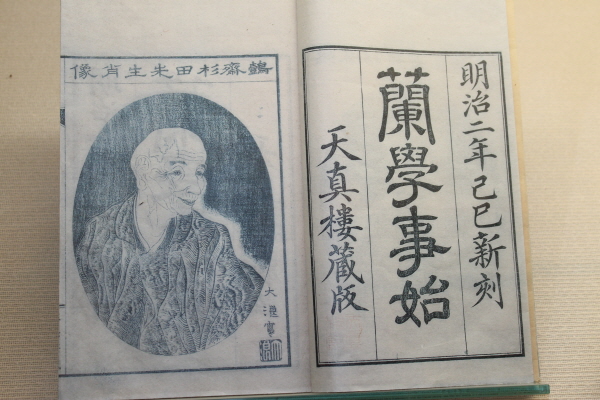 明治二年己巳新刻
蘭學事始
天真樓藏版
鷧齋杉田先生肖像